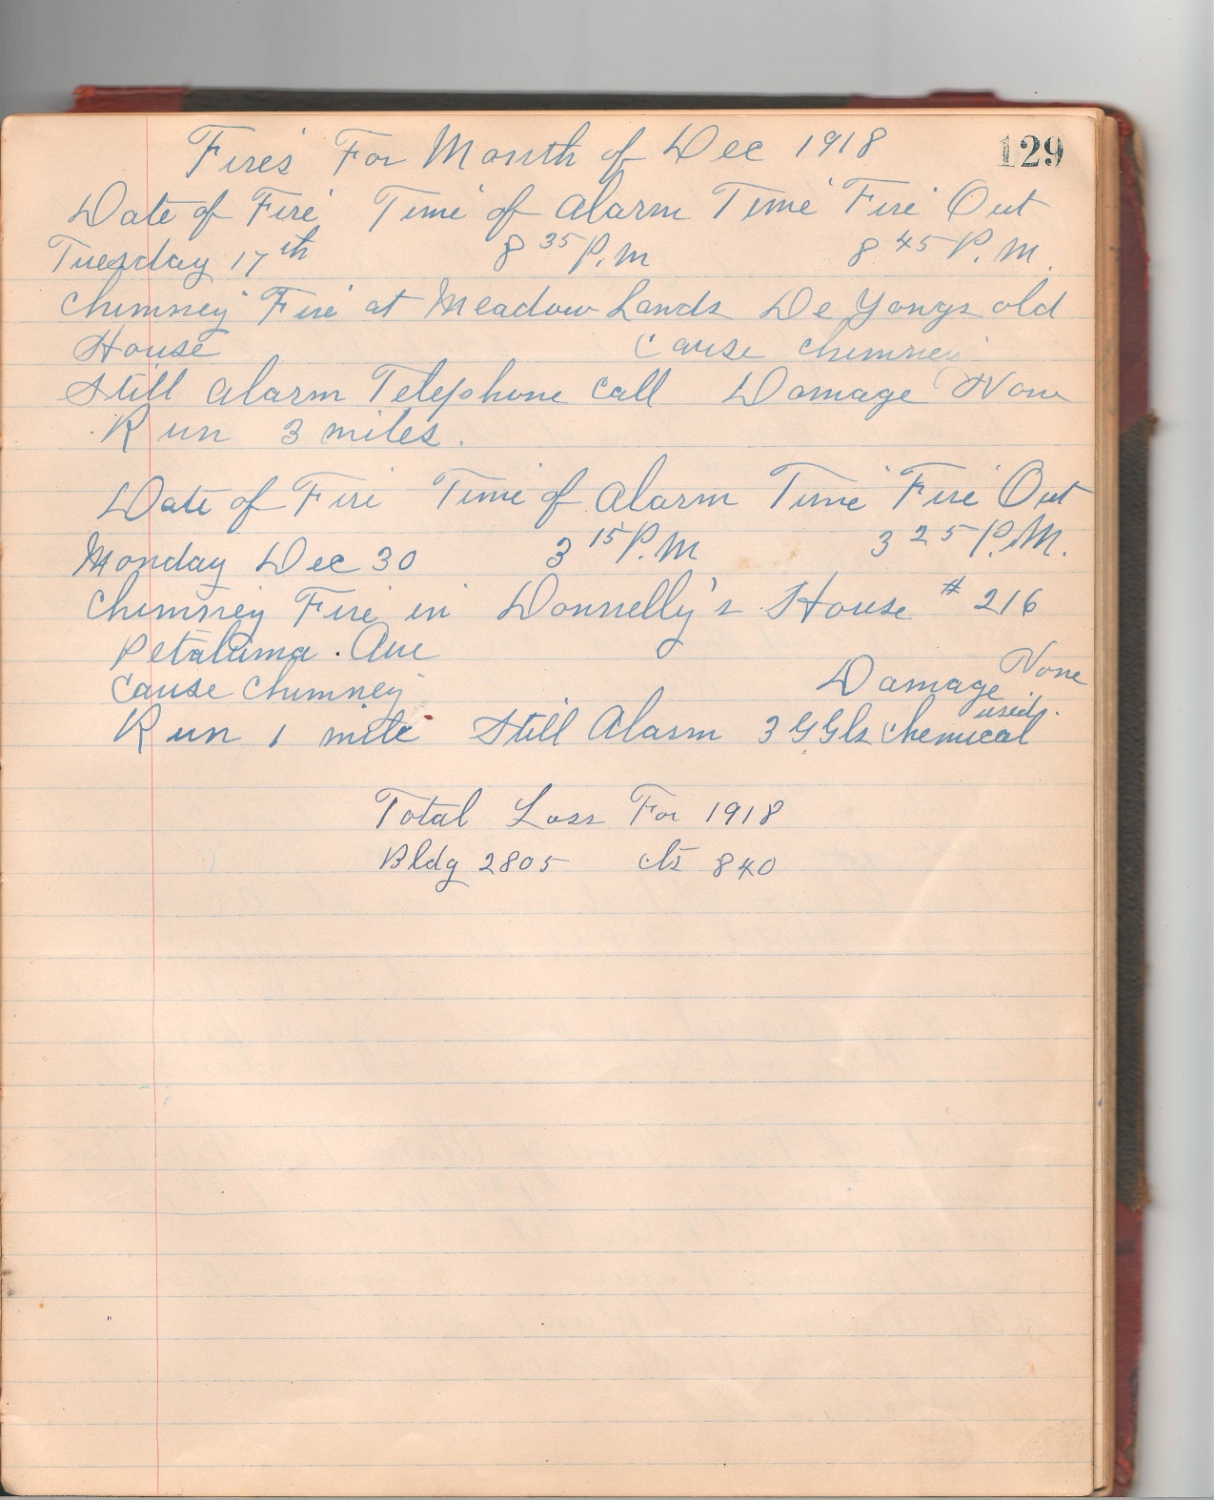 Fires For Month of Dec 1918 129
Date of Fire Time of Alarm Time Fire Out
Tuesday 17th 8 35 P.M 8 45 P.M.
Chimney Fire at Meadow Lands De Yongs old
House Cause Chimney
Still Alarm Telephone Call Damage None
Run 3 miles.
Date of Fire Time of Alarm Time Fire Out
Monday Dec 30 3 15 P.M 3 25 P.M.
Chimney Fire in Donnelly's House # 216
Petaluma. Ave
Cause Chimney Damage None
Run 1 mile Still Alarm 3 Gls Chemical used.
Total Loss For 1918
Bldg 2805 840